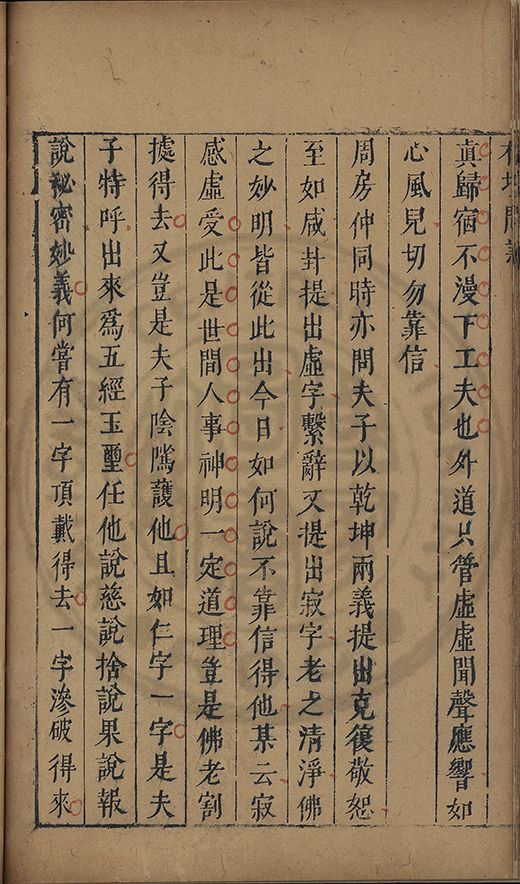 真歸宿不漫下工夫也外道只管虛虛聞聲應響如
心風兒切勿靠信
周房仲同時亦問夫子以乾坤兩義提出克復敬恕
至如咸卦提出虛字繫辭又提出寂字老之清淨佛
之妙明皆從此出今日如何說不靠信得他某云寂
感虛受此是世間人事神明一定道理豈是佛老割
據得去又豈是夫子陰隲護他且如仁字一字是夫
子特呼出來爲五經玉璽任他說慈說捨說果說報
說秘密妙義何嘗有一字頂戴得去一字滲破得來